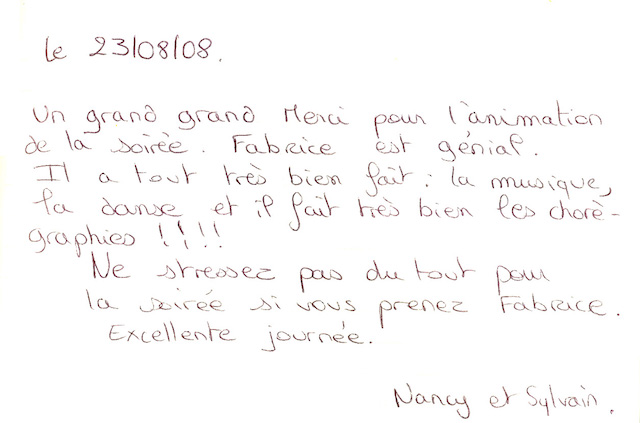 le 23/08/08.
Un grand grand Merci pour l'animation
de la soirée. Fabrice est génial.
Il a tout très bien fait : la musique,
la danse et il fait très bien les choré-
graphies !!!!
Ne stressez pas du tout pour
la soirée si vous prenez Fabrice.
Excellente journée.
Nancy et Sylvain.